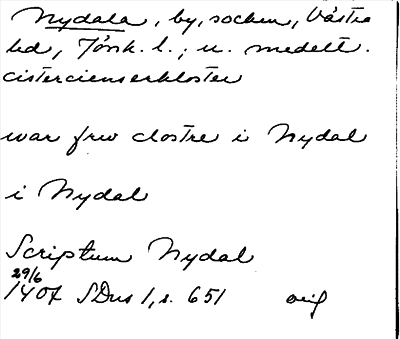 Nydala, by, socken, Västra
hd, Jönk. l.; u. medelt.
cistercienserkloster
war frw clostre i Nydal
i Nydal
Scriptum Nydal
29/6
1407 SDns 1, s. 651 orig